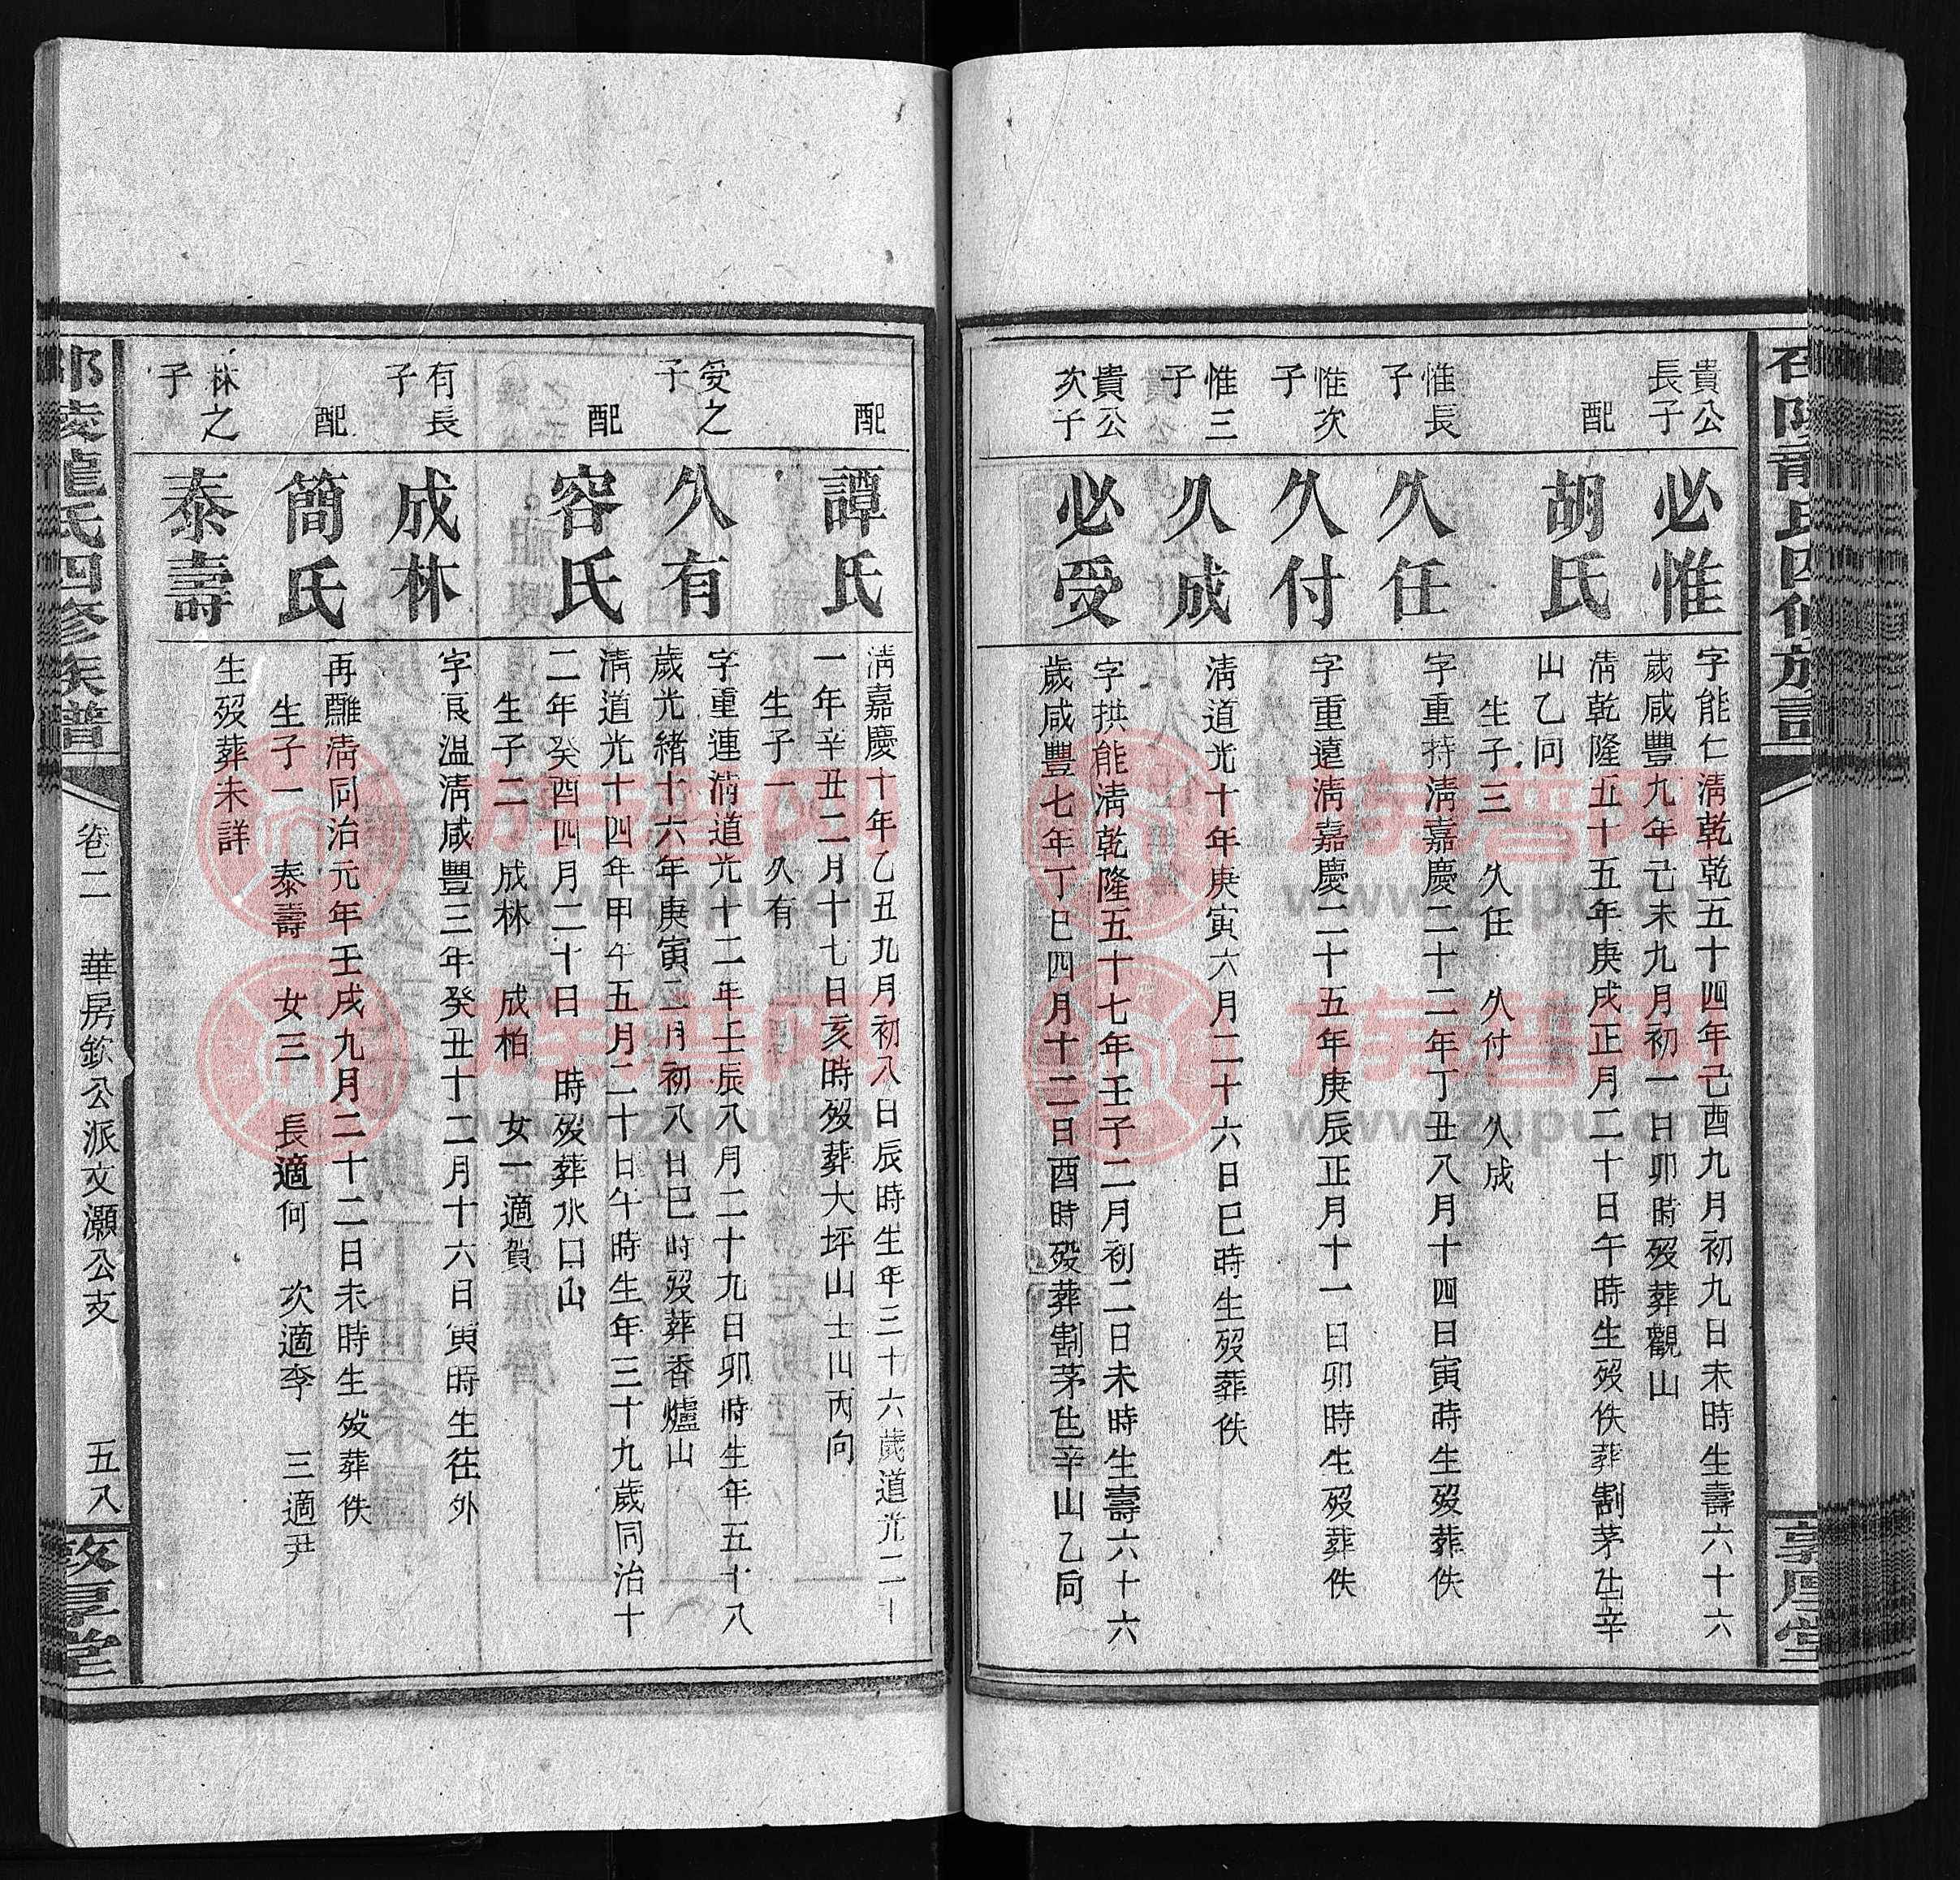 貴公長子
必惟
字能仁淸乾乾五十四年己酉九月初九日未時生壽六十六
歲咸豐九年己未九月初一日卯時歿葬觀山
配
胡氏
淸乾隆五十五年庚戌正月二十日午時生歿佚葬割茅㐌辛
山乙向
生子三 久任 久付 久成
惟長子
久任
字重持淸嘉慶二十二年丁丑八月十四日寅時生歿葬佚
惟次子
久付
字重遠淸嘉慶二十五年庚辰正月十一日卯時生歿葬佚
惟三子
久成
淸道光十年庚寅六月二十六日巳時生歿葬佚
貴公次子
必受
字拱能淸乾隆五十七年壬子二月初二日未時生壽六十六
歲咸豐七年丁巳四月十二日酉時歿葬割茅㐌辛山乙向
配
譚氏
淸嘉慶十年乙丑九月初八日辰時生年三十六歲道光二十
一年辛丑二月十七日亥時歿葬大坪山士山丙向
生子一 久有
受之子
久有
字重連淸道光十二年壬辰八月二十九日卯時生年五十八
歲光緒十六年庚寅二月初八日巳時歿葬香爐山
配
容氏
淸道光十四年甲午五月二十日午時生年三十九歲同治十
二年癸酉四月二十日 時歿葬水口山
生子二 成林 成柏 女一適賀
有長子
成林
字良温淸咸豐三年癸丑十二月十六日寅時生往外
配
簡氏
再醮淸同治元年壬戌九月二十二日未時生歿葬佚
生子一 泰壽 女三 長適何 次適李 三適尹
林之子
泰壽
生歿葬未詳
邵陵龍氏四修族譜
卷二 華房欽公派文灝公支 五八
敦厚堂
族譜网
www.zupu.cn
族譜网
www.zupu.cn
族譜网
www.zupu.cn
族譜网
www.zupu.cn